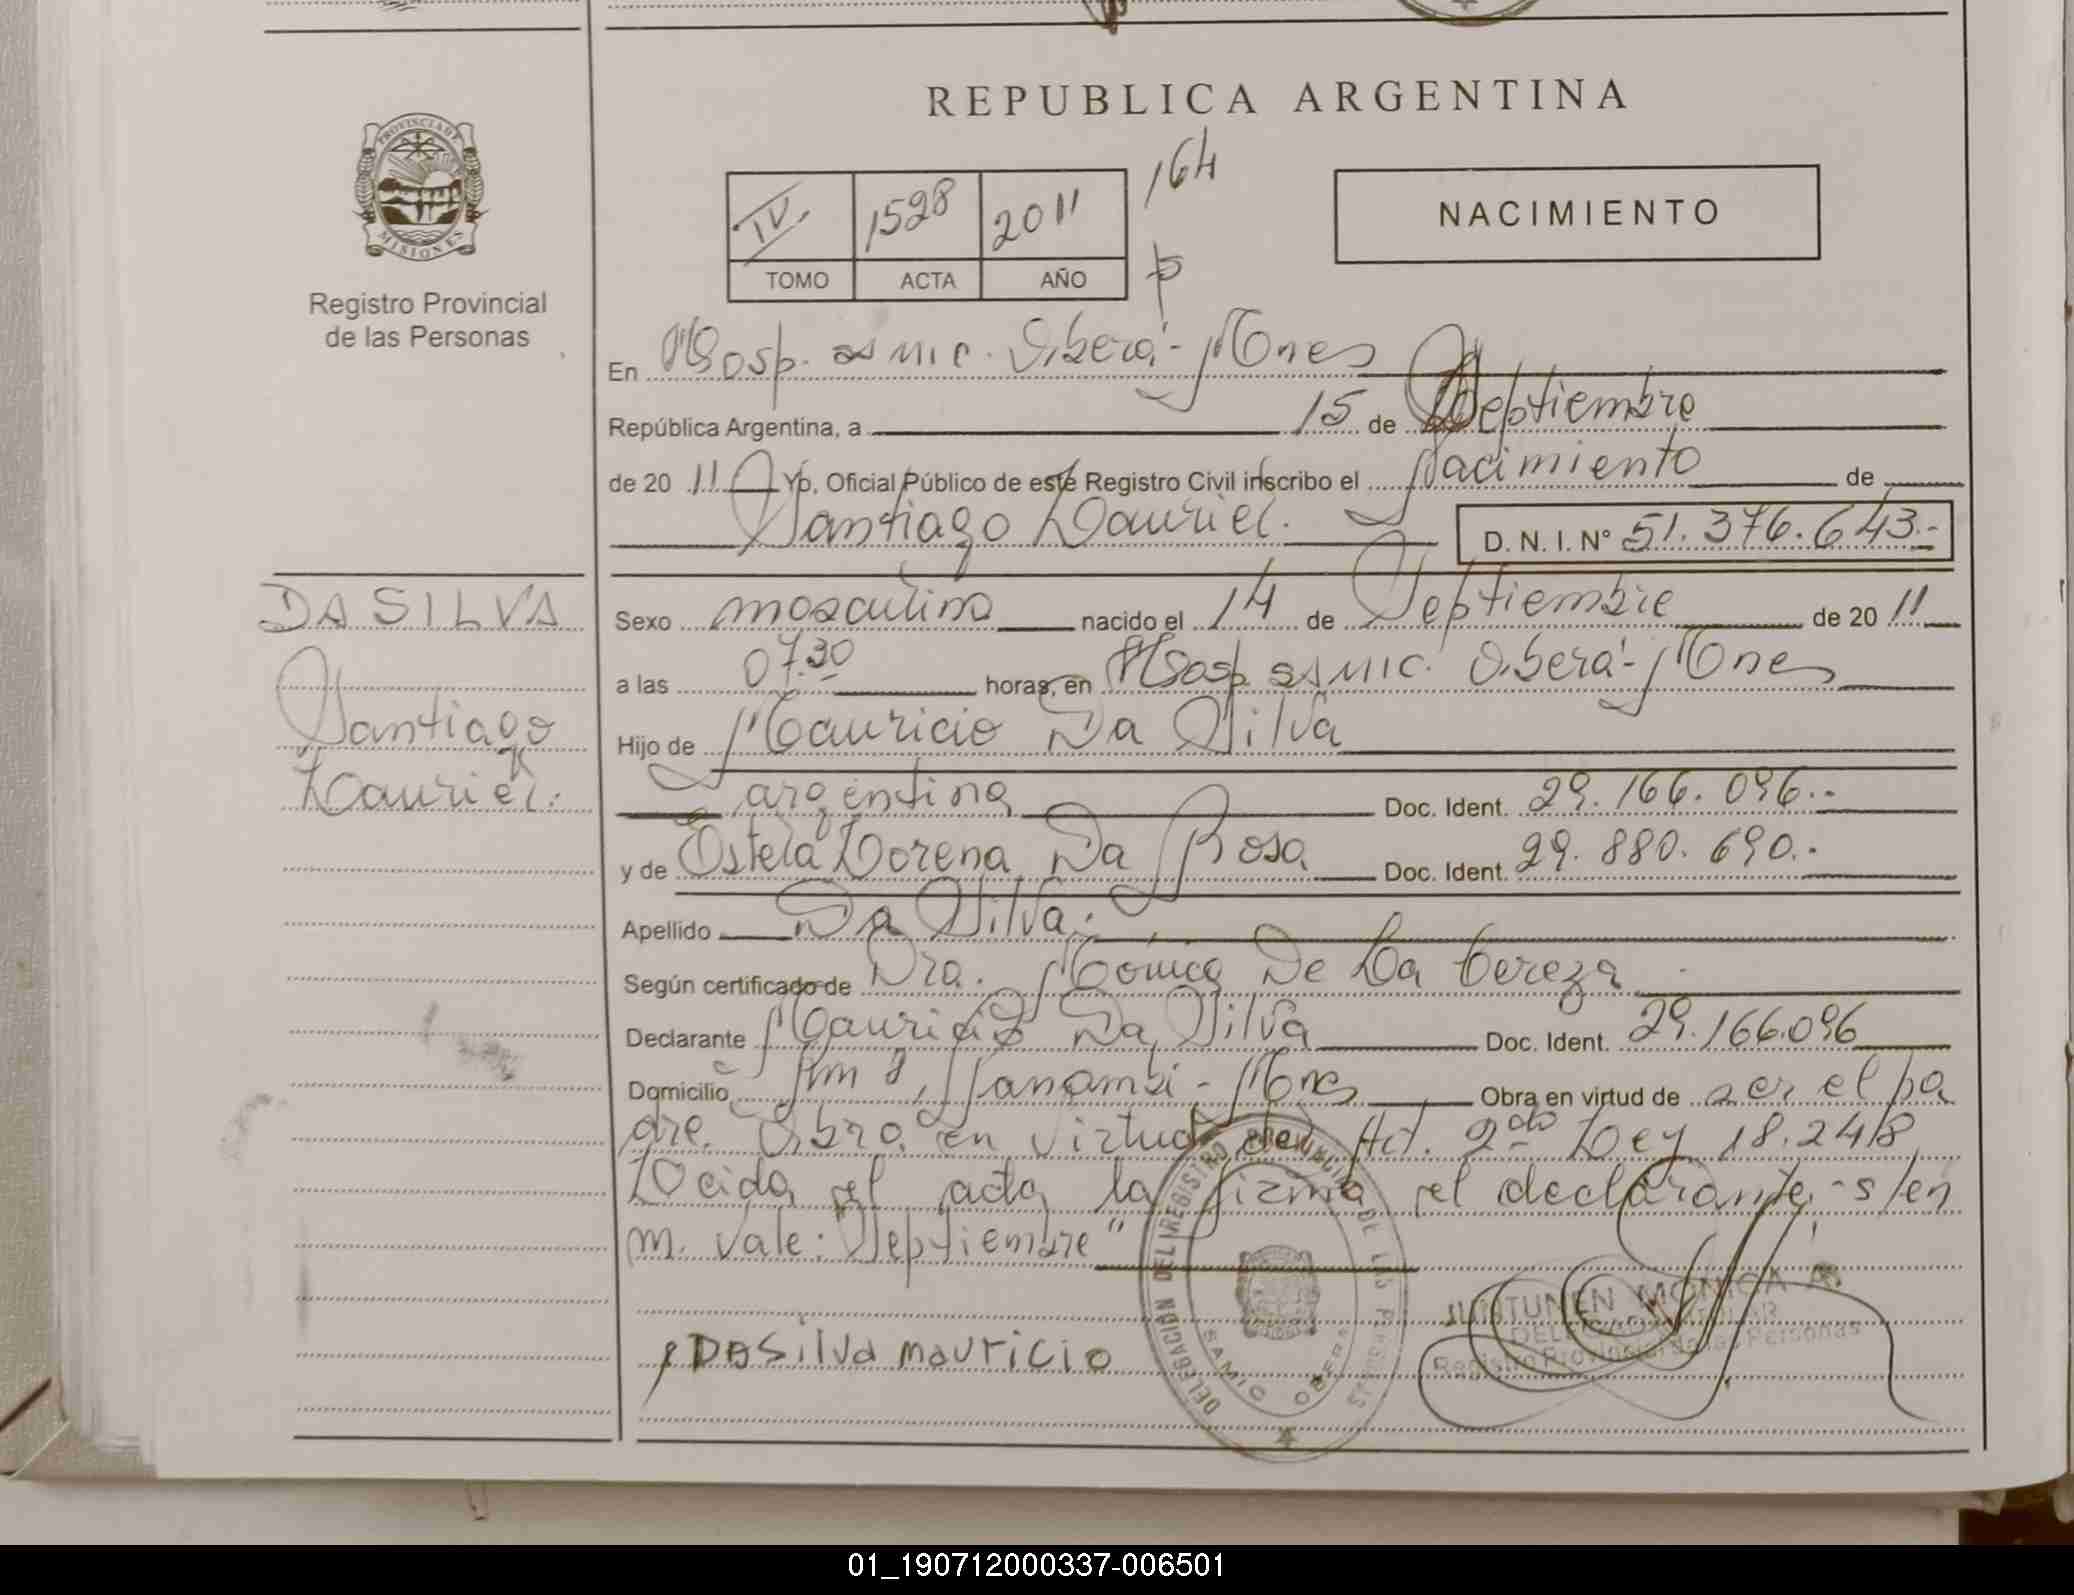 REPUBLICA ARGENTINA
PROVINCIA DE
MISIONES
Registro Provincial
de las Personas
IV 1528 2011 164
TOMO ACTA AÑO
NACIMIENTO
En Hosp. SAMIC. Oberá - Mnes
República Argentina, a 15 de Septiembre
de 20 11 Yo, Oficial Público de este Registro Civil inscribo el Nacimiento de
Santiago Lauriel. D. N. I. N° 51.376.643.-
DA SILVA
Santiago
Lauriel.
Sexo masculino nacido el 14 de Septiembre de 20 11
a las 07.30 horas, en Hosp SAMIC. Oberá - Mnes
Hijo de Mauricio Da Silva
argentina Doc. Ident. 29.166.096.-
y de Estela Lorena Da Rosa Doc. Ident. 29.880.690.-
Apellido Da Silva.
Según certificado de Dra. Mónica De La
Declarante Mauricio Da Silva Doc. Ident. 29.166.096
Domicilio Km 8, Panambí - Mnes Obra en virtud de ser el pa
dre. Obra en virtud del Art. 2do Ley 18.248
Leida el acta la firma el declarante - s/en
m. vale: Septiembre"
DA Silva mauricio
DELEGACION DEL REGISTRO PROVINCIAL DE LAS PERSONAS
SAMIC OBERA
MONICA A.
DELEGADA TITULAR
Registro Provincial de las Personas
01_190712000337-006501